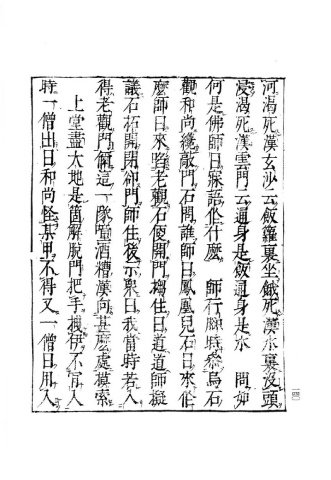 河渴死漢玄沙云飯籮裏坐餓死漢水裏沒頭
浸渴死漢雲門云通身是飯通身是水　問如
何是佛師曰寐語作什麼　師行腳時參烏石
觀和尚纔敲門石問誰師曰鳳凰兒石曰來作
麼師曰來啗老觀石便開門搊住曰道道師擬
議石拓開閉卻門師住後示衆曰我當時若入
得老觀門你這一隊噇酒糟漢向甚麼處摸索
上堂盡大地是箇解脫門把手拽伊不肯入
時一僧出曰和尚怪某甲不得又一僧曰用入
一四